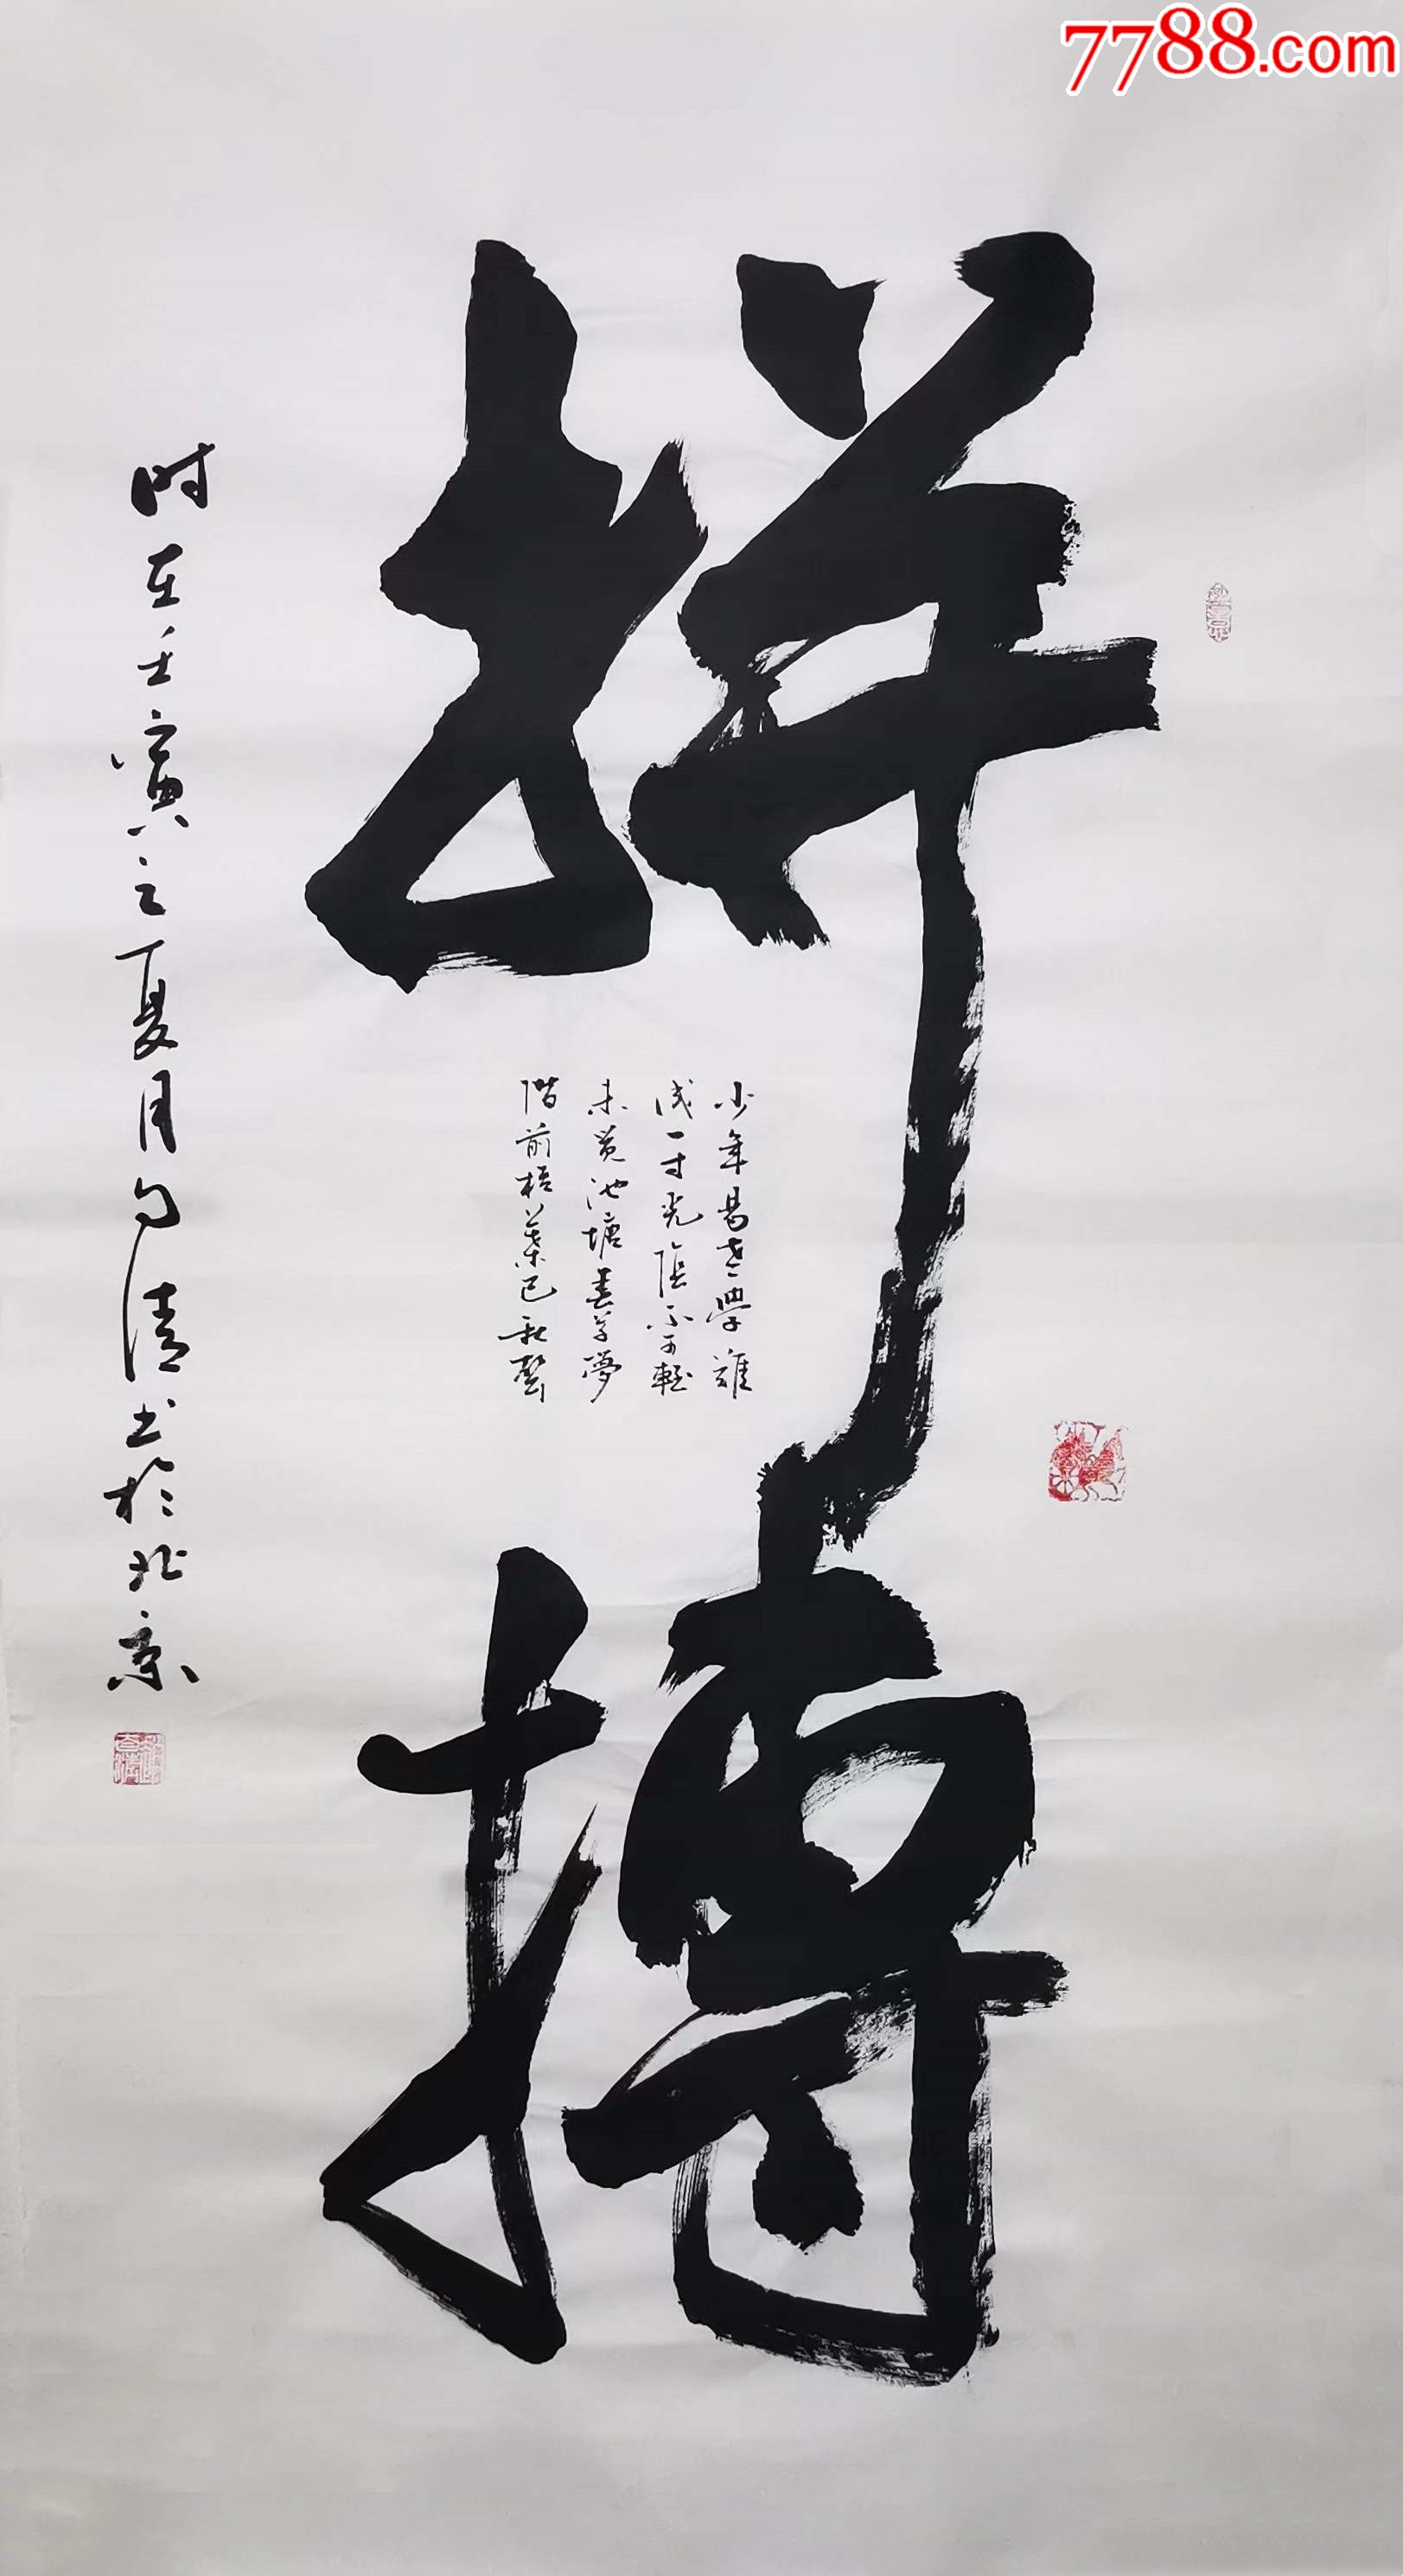 7788.com
拼搏
少年易老學難
成一寸光陰不可輕
未觉池塘春草夢
階前梧葉已秋聲
时在壬寅之夏月
清书於北京